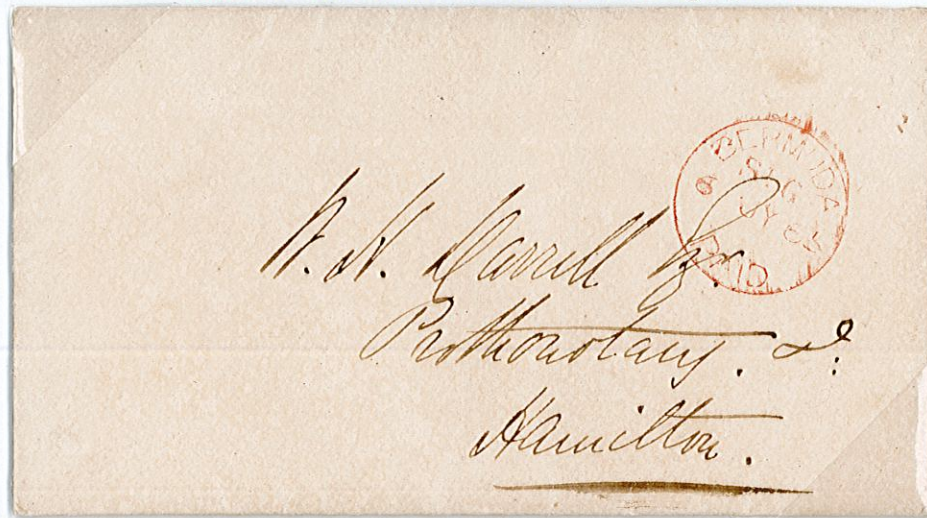 BERMUDA
PAID
W. H. Darrell Esqr.
Prothonotary. &c:
Hamilton.